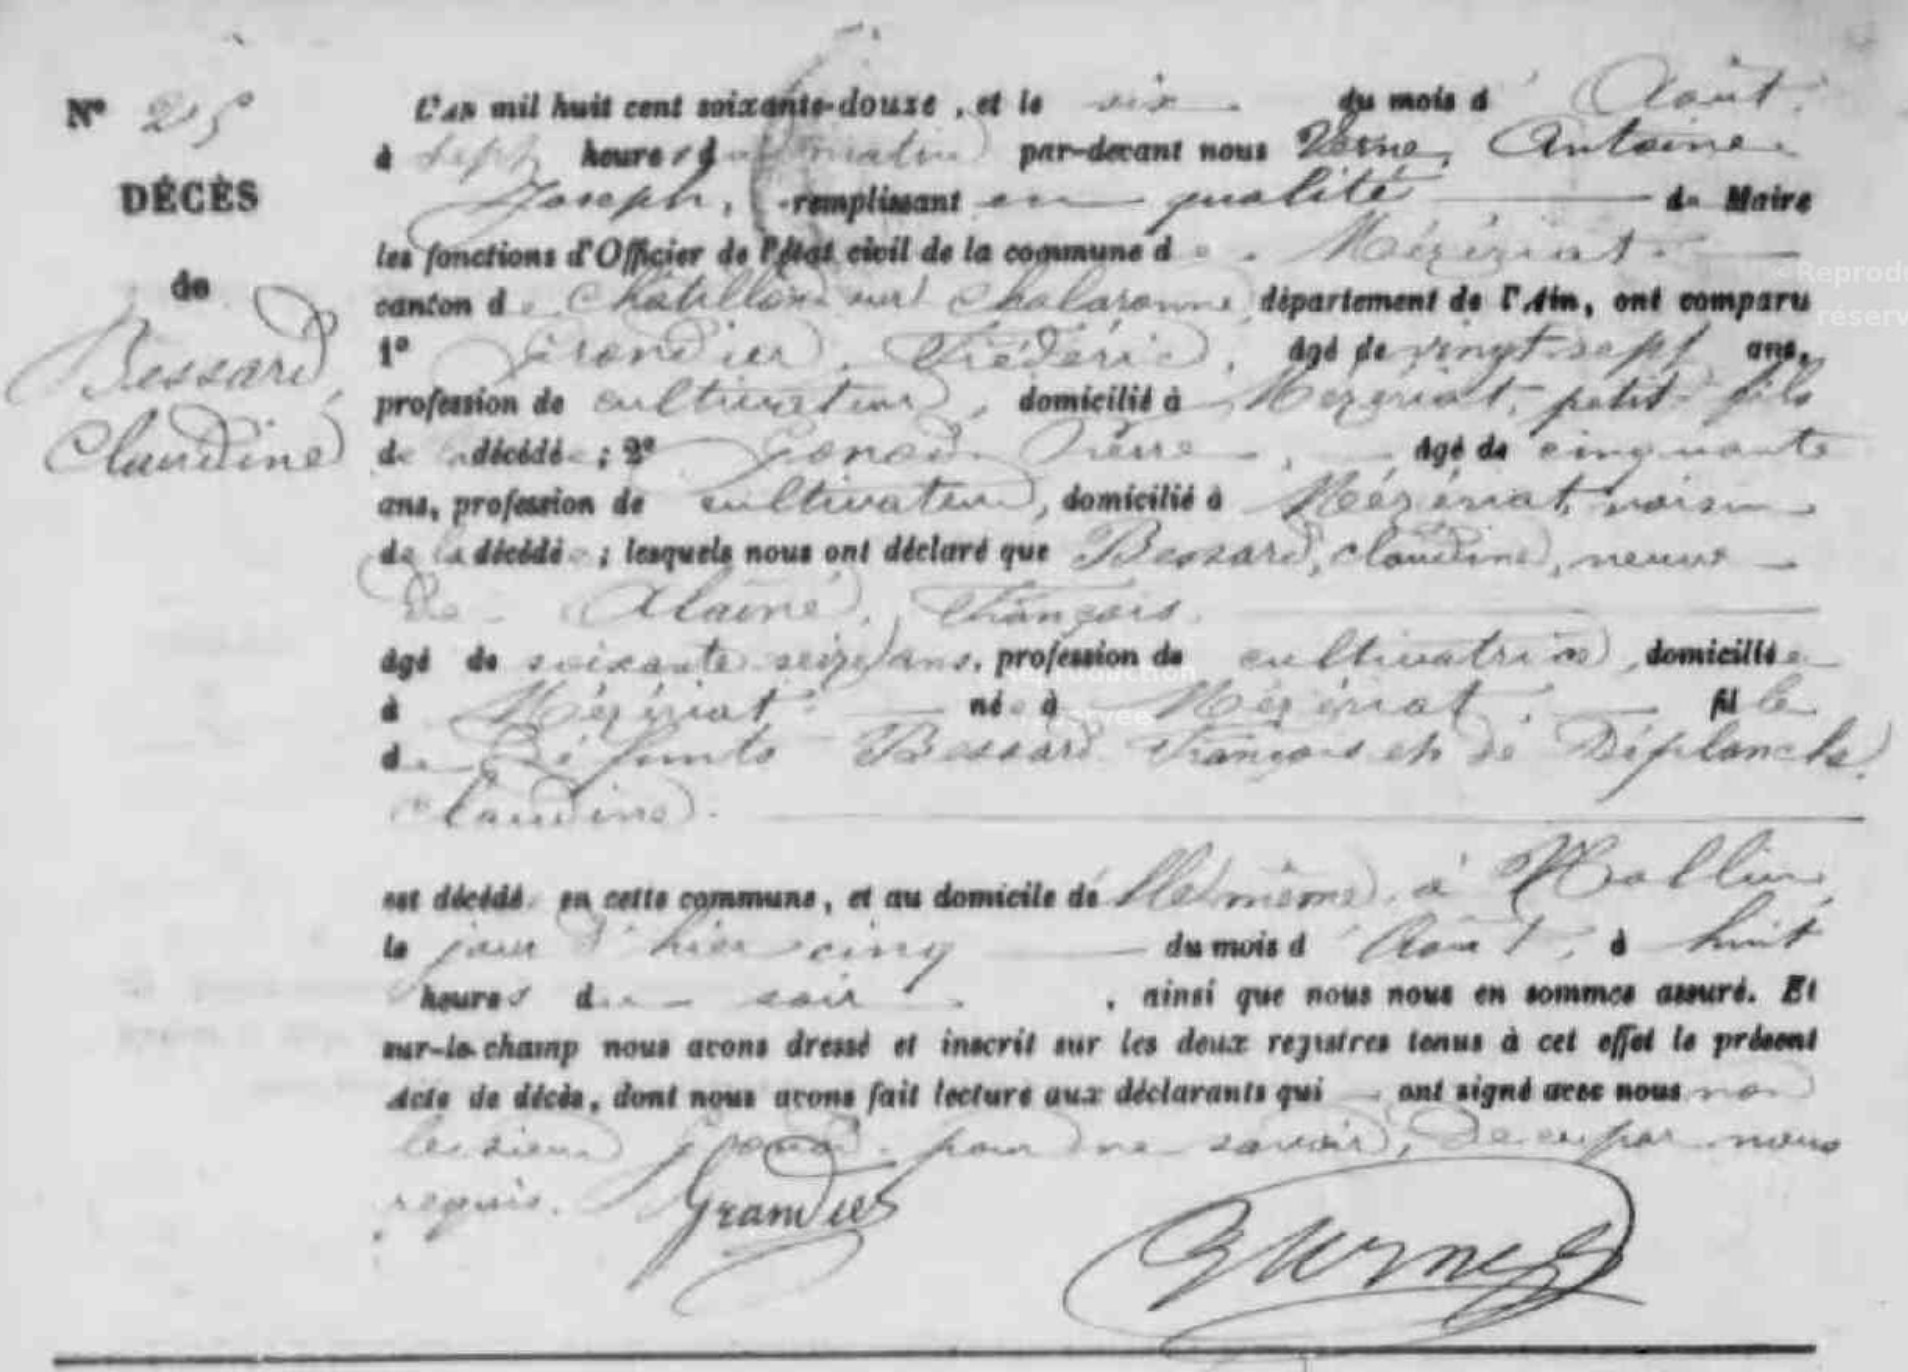 N° 25
DÉCÈS
de
Bessard,
Claudine
L'an mil huit cent soixante-douze, et le six du mois d'Août
à sept heures du matin par-devant nous Verne, Antoine
Joseph, remplissant en qualité de Maire
les fonctions d'Officier de l'état civil de la commune de Mézériat
canton de Chatillon sur Chalaronne département de l'Ain, ont comparu
1° Grandier, Frédéric, âgé de vingt-sept ans,
profession de cultivateur, domicilié à Mézériat, petit-fils
de la décédée; 2° Gonod Pierre, âgé de cinquante
ans, profession de cultivateur, domicilié à Mézériat, voisin
de la décédée; lesquels nous ont déclaré que Bessard, Claudine, veuve
de Alainé, François.
âgé de soixante seize ans, profession de cultivatrice, domiciliée
à Mézériat née à Mézériat. fille
de défunts Bessard François et de Déplanche
Claudine.
est décédée en cette commune, et au domicile de Elle même, à
le jour d'hier cinq du mois d'Août, à huit
heures du soir, ainsi que nous nous en sommes assuré. Et
sur-le-champ nous avons dressé et inscrit sur les deux registres tenus à cet effet le présent
Acte de décès, dont nous avons fait lecture aux déclarants qui ont signé avec nous non
le sieur Gonod pour ne savoir, de ce par nous
requis. Grandier
Verne